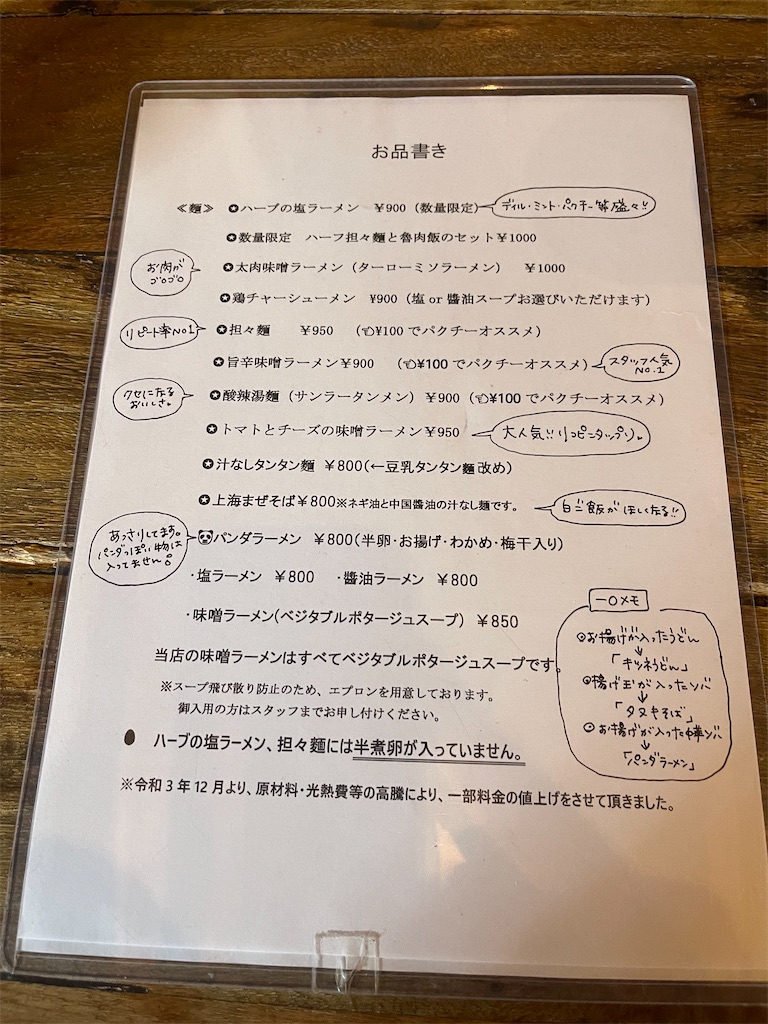 お品書き
≪麺≫ ✪ハーブの塩ラーメン ￥900（数量限定）
ディル・ミント・パクチー
✪数量限定 ハーフ担々麺と魯肉飯のセット￥1000
お肉が
ゴロゴロ
✪太肉味噌ラーメン（ターローミソラーメン） ￥1000
✪鶏チャーシューメン ¥900（塩 or 醬油スープお選びいただけます）
リピート率NO1
✪担々麺 ￥950 （👈¥100 でパクチーオススメ）
✪旨辛味噌ラーメン￥900 （👈¥100 でパクチーオススメ）
スタッフ人気
NO.1
クセになる
おいしさ。
✪酸辣湯麺（サンラータンメン） ￥900（👈¥100 でパクチーオススメ）
✪トマトとチーズの味噌ラーメン￥950
大人気!!リコピンタップリ。
✪汁なしタンタン麺 ￥800（←豆乳タンタン麺 改め）
✪上海まぜそば￥800※ネギ油と中国醬油の汁なし麺です。
白ご飯がほしくなる!!
あっさりしてます。
パンダっぽい物は
入ってません
🐼パンダラーメン ￥800（半卵・お揚げ・わかめ・梅干入り）
・塩ラーメン ￥800 ・醬油ラーメン ￥800
・味噌ラーメン（ベジタブルポタージュスープ） ￥850
当店の味噌ラーメンはすべてベジタブルポタージュスープです。
※スープ飛び散り防止のため、エプロンを用意しております。
御入用の方はスタッフまでお申し付けください。
一口メモ
お揚げが入ったうどん
↓
「キツネうどん」
揚げ玉が入ったソバ
↓
「タヌキそば」
お揚げが入った中華ソバ
↓
「パンダラーメン」
ハーブの塩ラーメン、担々麺には半煮卵が入っていません。
※令和 3 年 12 月より、原材料・光熱費等の高騰により、一部料金の値上げをさせて頂きました。